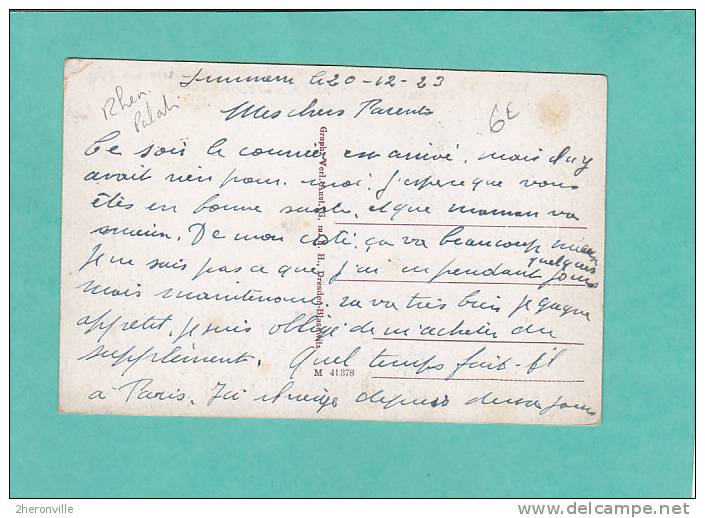 le 20-12-23
Rhen.
Palati
6€
Mes chers Parents
Ce soir le courrier est arrivé. mais il n'y
avait rien pour moi. J'espère que vous
êtes en bonne santé. et que maman va
mieux. De mon coté, ça va beaucoup mieux
Je ne sais pas ce que j'ai eu pendant quelques jours
mais maintenant. ça va très bien je gagne
appetit. je suis obligé de m'acheter du
supplément. Quel temps fait-il
a Paris. Ici il neige depuis deux jours
Graph. Verl.-Anst. G. m. b. H., Dresden-Blasewitz
M 41378
2heronville
delcampe.net